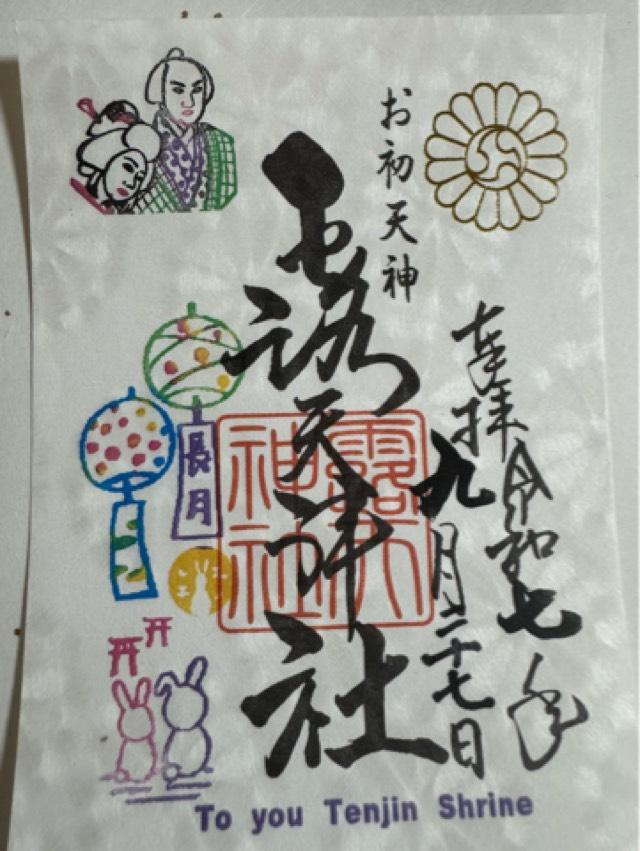 奉拝
令和七年
九月二十七日
お初天神
露天神社
露天
神社
長月
To you Tenjin Shrine